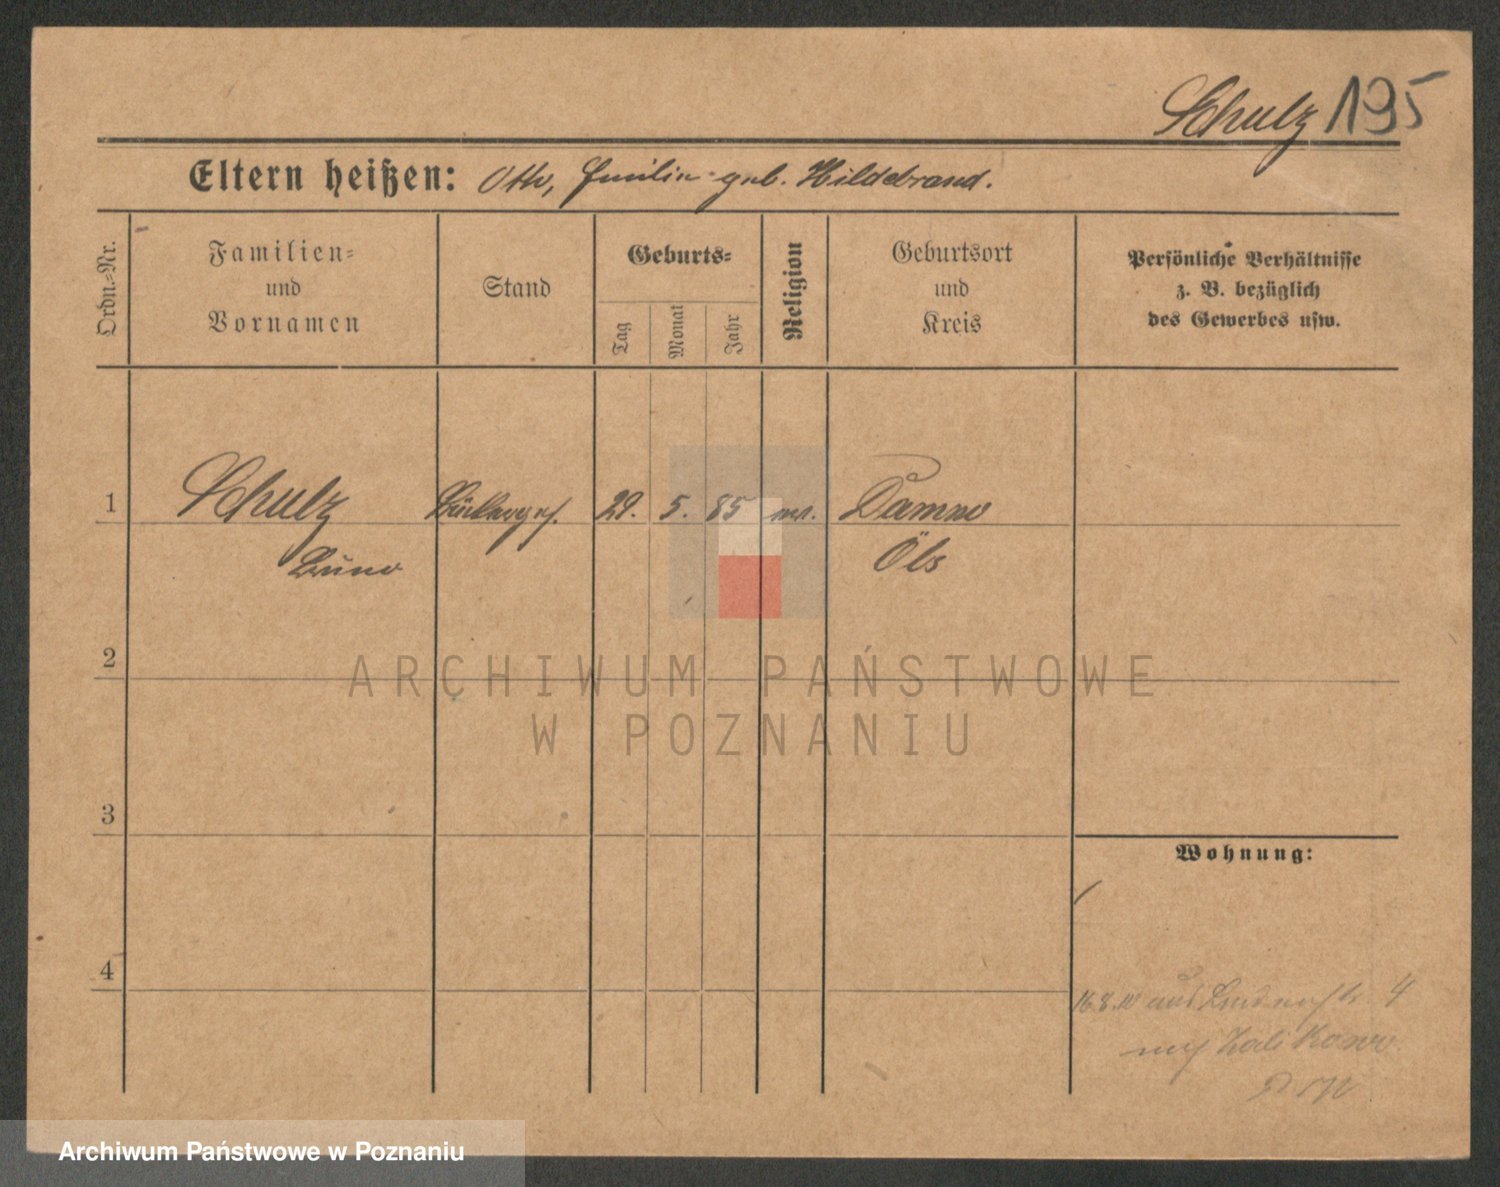 Schulz 195
Eltern heißen: Otto, Emilie geb. Hildebrand.
Ordn.-Nr.
Familien-
und
Vornamen
Stand
Geburts-
Tag
Monat
Jahr
Religion
Geburtsort
und
Kreis
Persönliche Verhältnisse
z. B. bezüglich
des Gewerbes usw.
1 Schulz 29. 5. 85
Bruno Öls
2
ARCHIWUM PAŃSTWOWE
W POZNANIU
3
Wohnung:
4
16.8.10 aus 4
Archiwum Państwowe w Poznaniu